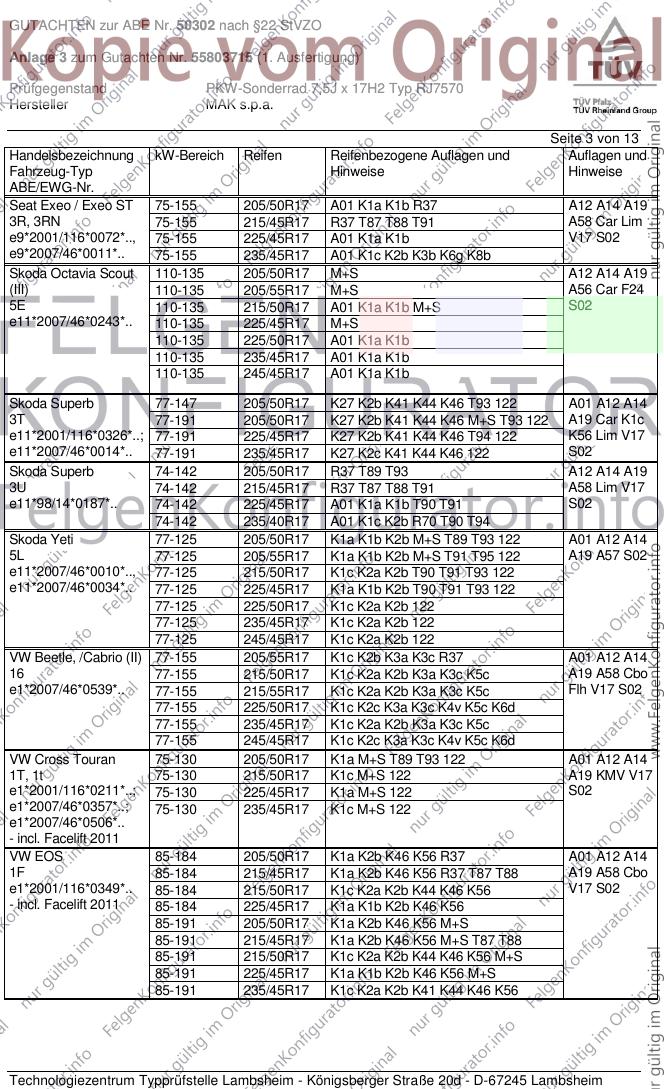 GUTACHTEN zur ABE Nr. 50302 nach §22 StVZO
Anlage 3 zum Gutachten Nr. 55803715 (1. Ausfertigung)
Kopie vom Original
Prüfgegenstand PKW-Sonderrad 7,5J x 17H2 Typ RJ7570
Hersteller MAK s.p.a.
TÜV
TÜV Pfalz
TÜV Rheinland Group
Seite 3 von 13
Handelsbezeichnung kW-Bereich Reifen Reifenbezogene Auflagen und Auflagen und
Fahrzeug-Typ Hinweise Hinweise
ABE/EWG-Nr.
Seat Exeo / Exeo ST 75-155 205/50R17 A01 K1a K1b R37 A12 A14 A19
3R, 3RN 75-155 215/45R17 R37 T87 T88 T91 A58 Car Lim
e9*2001/116*0072*.., 75-155 225/45R17 A01 K1a K1b V17 S02
e9*2007/46*0011*.. 75-155 235/45R17 A01 K1c K2b K3b K6g K8b
Skoda Octavia Scout 110-135 205/50R17 M+S A12 A14 A19
(III) 110-135 205/55R17 M+S A56 Car F24
5E 110-135 215/50R17 A01 K1a K1b M+S S02
e11*2007/46*0243*.. 110-135 225/45R17 M+S
110-135 225/50R17 A01 K1a K1b
110-135 235/45R17 A01 K1a K1b
110-135 245/45R17 A01 K1a K1b
FELGEN
KONFIGURATOR
Skoda Superb 77-147 205/50R17 K27 K2b K41 K44 K46 T93 122 A01 A12 A14
3T 77-191 205/50R17 K27 K2b K41 K44 K46 M+S T93 122 A19 Car K1c
e11*2001/116*0326*..; 77-191 225/45R17 K27 K2b K41 K44 K46 T94 122 K56 Lim V17
e11*2007/46*0014*.. 77-191 235/45R17 K27 K2c K41 K44 K46 122 S02
Skoda Superb 74-142 205/50R17 R37 T89 T93 A12 A14 A19
3U 74-142 215/45R17 R37 T87 T88 T91 A58 Lim V17
e11*98/14*0187*.. 74-142 225/45R17 A01 K1a K1b T90 T91 S02
74-142 235/40R17 A01 K1c K2b R70 T90 T94
FelgenKonfigurator.info
Skoda Yeti 77-125 205/50R17 K1a K1b K2b M+S T89 T93 122 A01 A12 A14
5L 77-125 205/55R17 K1a K1b K2b M+S T91 T95 122 A19 A57 S02
e11*2007/46*0010*.., 77-125 215/50R17 K1c K2a K2b T90 T91 T93 122
e11*2007/46*0034*.. 77-125 225/45R17 K1a K1b K2b T90 T91 T93 122
77-125 225/50R17 K1c K2a K2b 122
77-125 235/45R17 K1c K2a K2b 122
77-125 245/45R17 K1c K2a K2b 122
VW Beetle, /Cabrio (II) 77-155 205/55R17 K1c K2b K3a K3c R37 A01 A12 A14
16 77-155 215/50R17 K1c K2a K2b K3a K3c K5c A19 A58 Cbo
e1*2007/46*0539*.. 77-155 215/55R17 K1c K2a K2b K3a K3c K5c Flh V17 S02
77-155 225/50R17 K1c K2c K3a K3c K4v K5c K6d
77-155 235/45R17 K1c K2a K2b K3a K3c K5c
77-155 245/45R17 K1c K2c K3a K3c K4v K5c K6d
VW Cross Touran 75-130 205/50R17 K1a M+S T89 T93 122 A01 A12 A14
1T, 1t 75-130 215/50R17 K1c M+S 122 A19 KMV V17
e1*2001/116*0211*..; 75-130 225/45R17 K1a M+S 122 S02
e1*2007/46*0357*..; 75-130 235/45R17 K1c M+S 122
e1*2007/46*0506*..
- incl. Facelift 2011
VW EOS 85-184 205/50R17 K1a K2b K46 K56 R37 A01 A12 A14
1F 85-184 215/45R17 K1a K2b K46 K56 R37 T87 T88 A19 A58 Cbo
e1*2001/116*0349*.. 85-184 215/50R17 K1c K2a K2b K44 K46 K56 V17 S02
- incl. Facelift 2011 85-184 225/45R17 K1a K1b K2b K46 K56
85-191 205/50R17 K1a K2b K46 K56 M+S
85-191 215/45R17 K1a K2b K46 K56 M+S T87 T88
85-191 215/50R17 K1c K2a K2b K44 K46 K56 M+S
85-191 225/45R17 K1a K1b K2b K46 K56 M+S
85-191 235/45R17 K1c K2a K2b K41 K44 K46 K56
Technologiezentrum Typprüfstelle Lambsheim - Königsberger Straße 20d - D-67245 Lambsheim